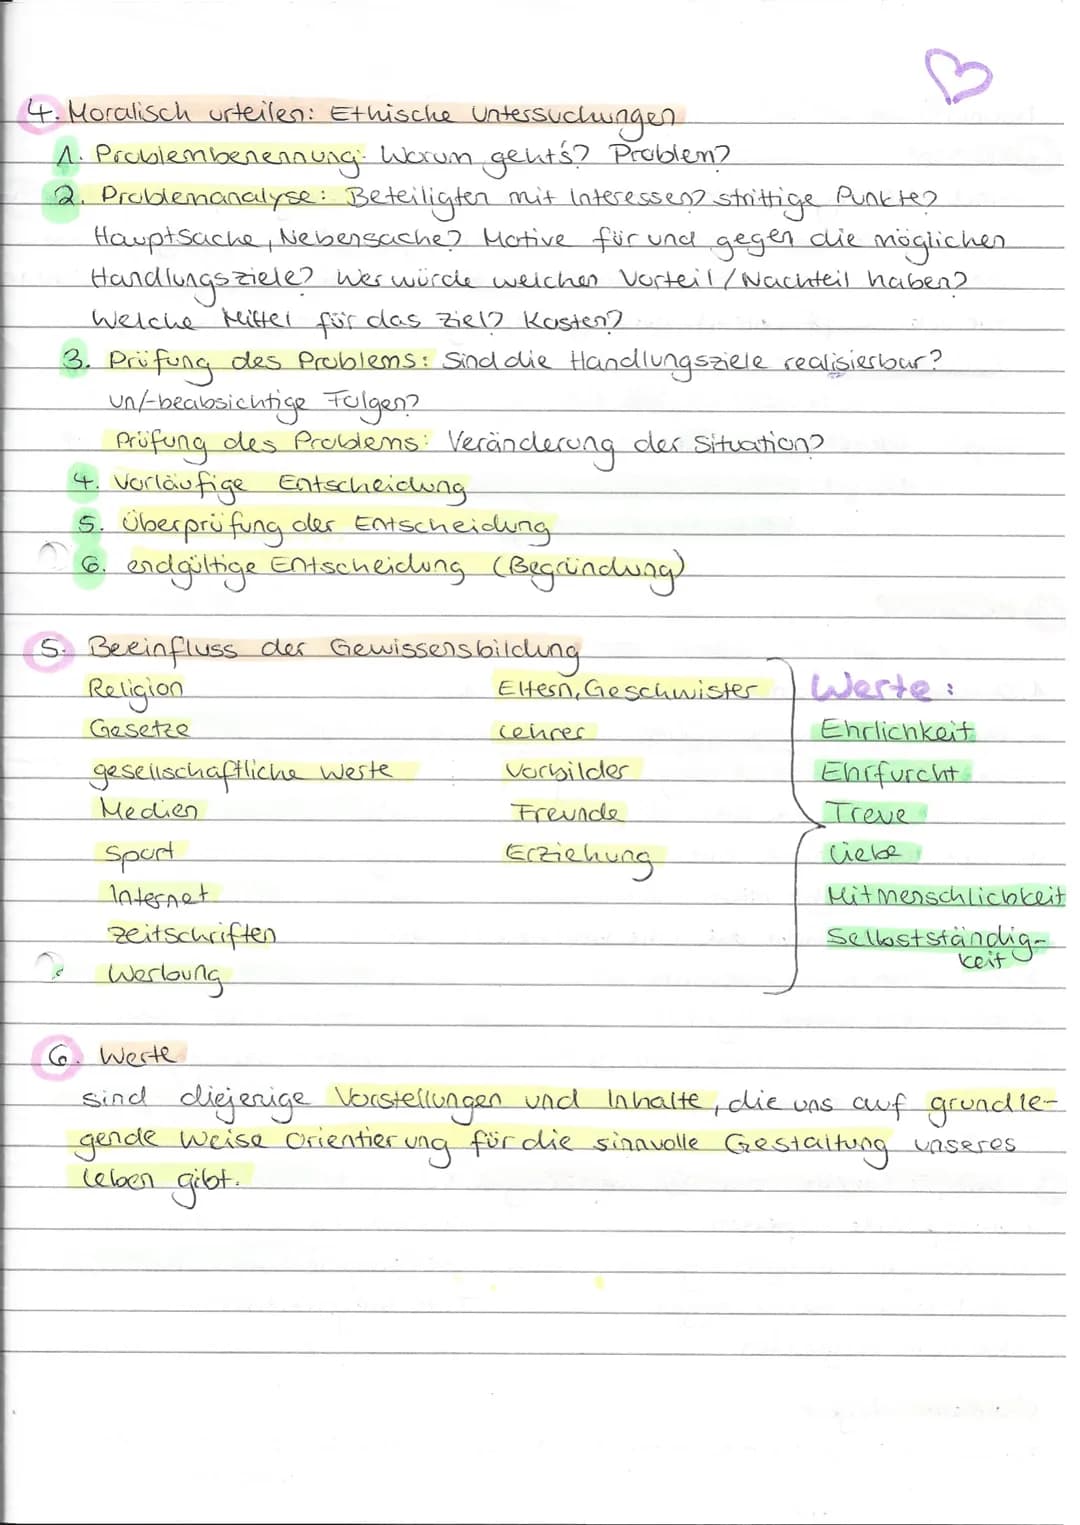 4. Moralisch urteilen: Ethische Untersuchungen
1. Problembenennung: Worum geht's? Problem?
2. Problemanalyse: Beteiligten mit Interessen? strittige Punkte?
Hauptsache, Nebensache? Motive für und gegen die möglichen
Handlungsziele? Wer würde welchen Vorteil/Nachteil haben?
Welche Mittel für das Ziel? Kosten?
3. Prüfung des Problems: Sind die Handlungsziele realisierbar?
un/-beabsichtige Folgen?
Prüfung des Problems: Veränderung der Situation?
4. Vorläufige Entscheidung
5. Überprüfung der Entscheidung
6. endgültige Entscheidung (Begründung)
5. Beeinfluss der Gewissensbildung
Religion
Gesetze
gesellschaftliche Werte
Medien
Sport
Internet
Zeitschriften
Werbung
Eltern, Geschwister
Lehrer
Vorbilder
Freunde
Erziehung
Werte:
Ehrlichkeit
Ehrfurcht
Treue
Liebe
Mitmenschlichkeit
Selbstständig-
keit
6. Werte
sind diejenige Vorstellungen und Inhalte, die uns auf grundle-
gende Weise Orientierung für die sinnvolle Gestaltung unseres
Leben gibt.